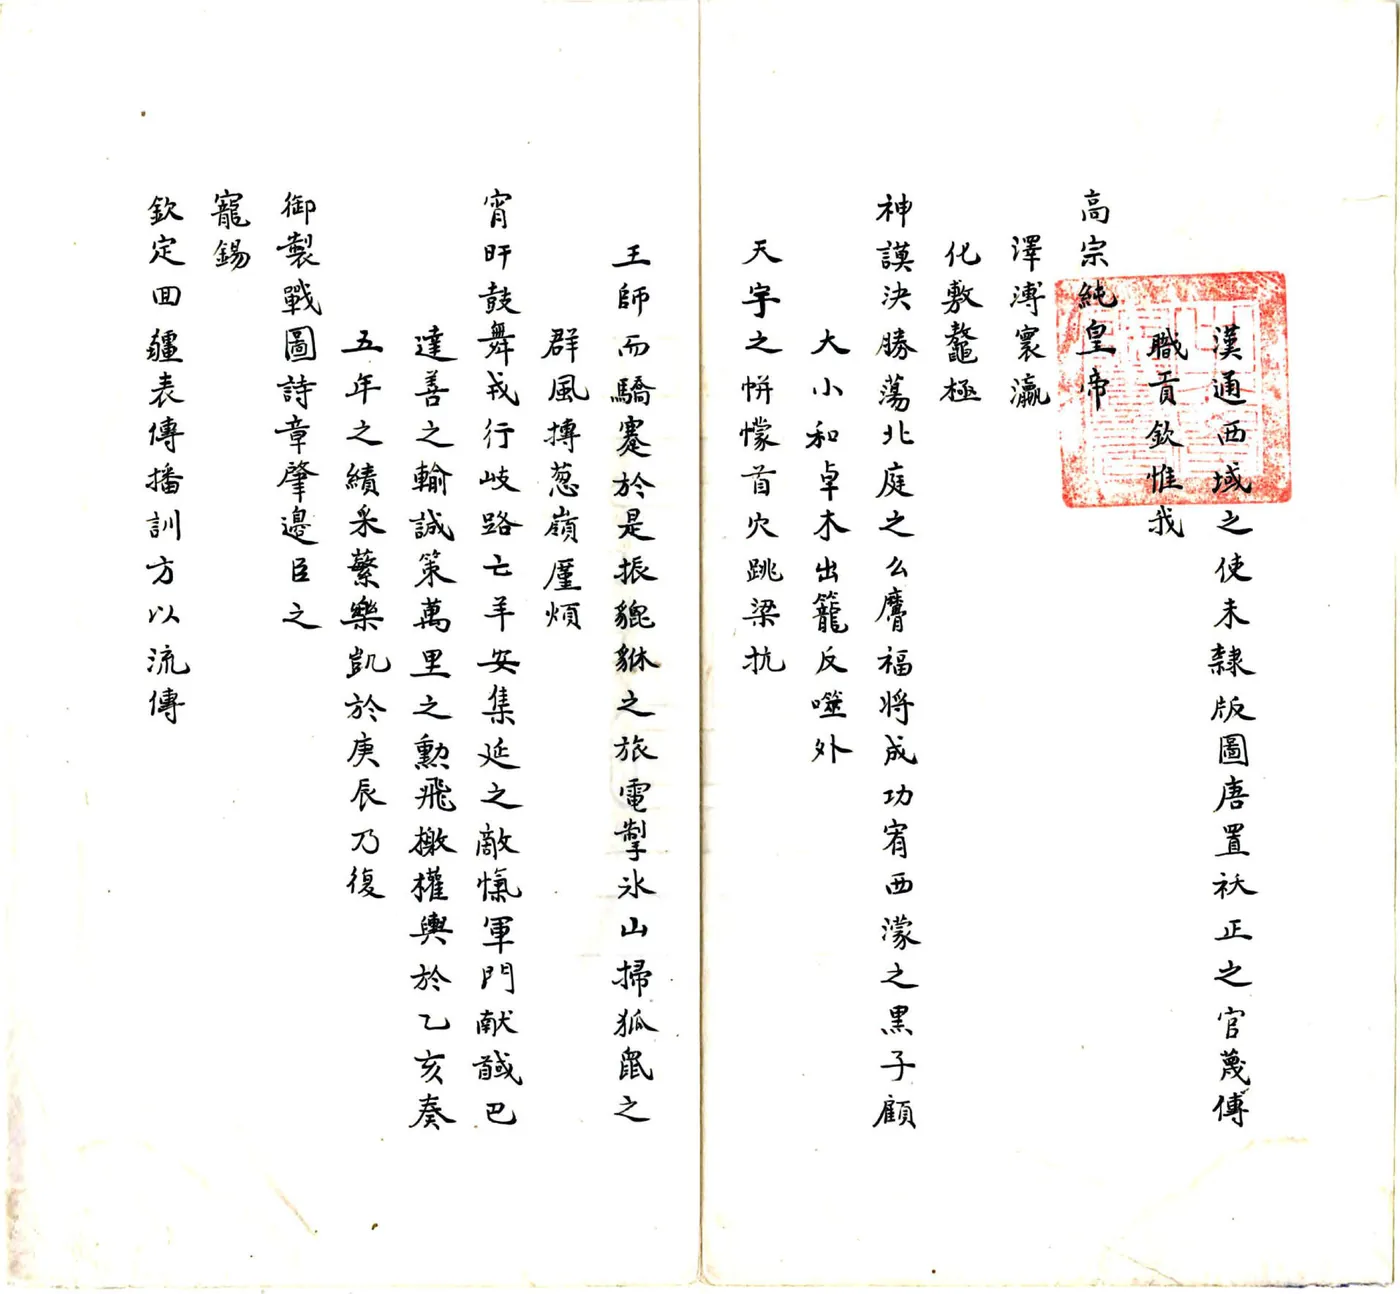 漢通西域之使未隸版圖唐置袄正之官蔑傅
職貢欽惟我
高宗純皇帝
澤溥寰瀛
化敷鼇極
神謨決勝蕩北庭之么麿福將成功宥西濛之黒子顧
大小和卓木出籠反噬外
天宇之帡幪首穴跳梁抗
王師而驕蹇於是振貔貅之旅電掣氷山掃狐鼠之
群風摶葱嶺厪煩
宵旰鼓舞戎行岐路亡羊安集延之敵愾軍門献馘巴
達善之輸誠策萬里之勲飛檄權輿於乙亥奏
五年之績釆蘩樂凱於庚辰乃復
御製戰圖詩章肇邊臣之
寵錫
欽定回疆表傳播訓方以流傳